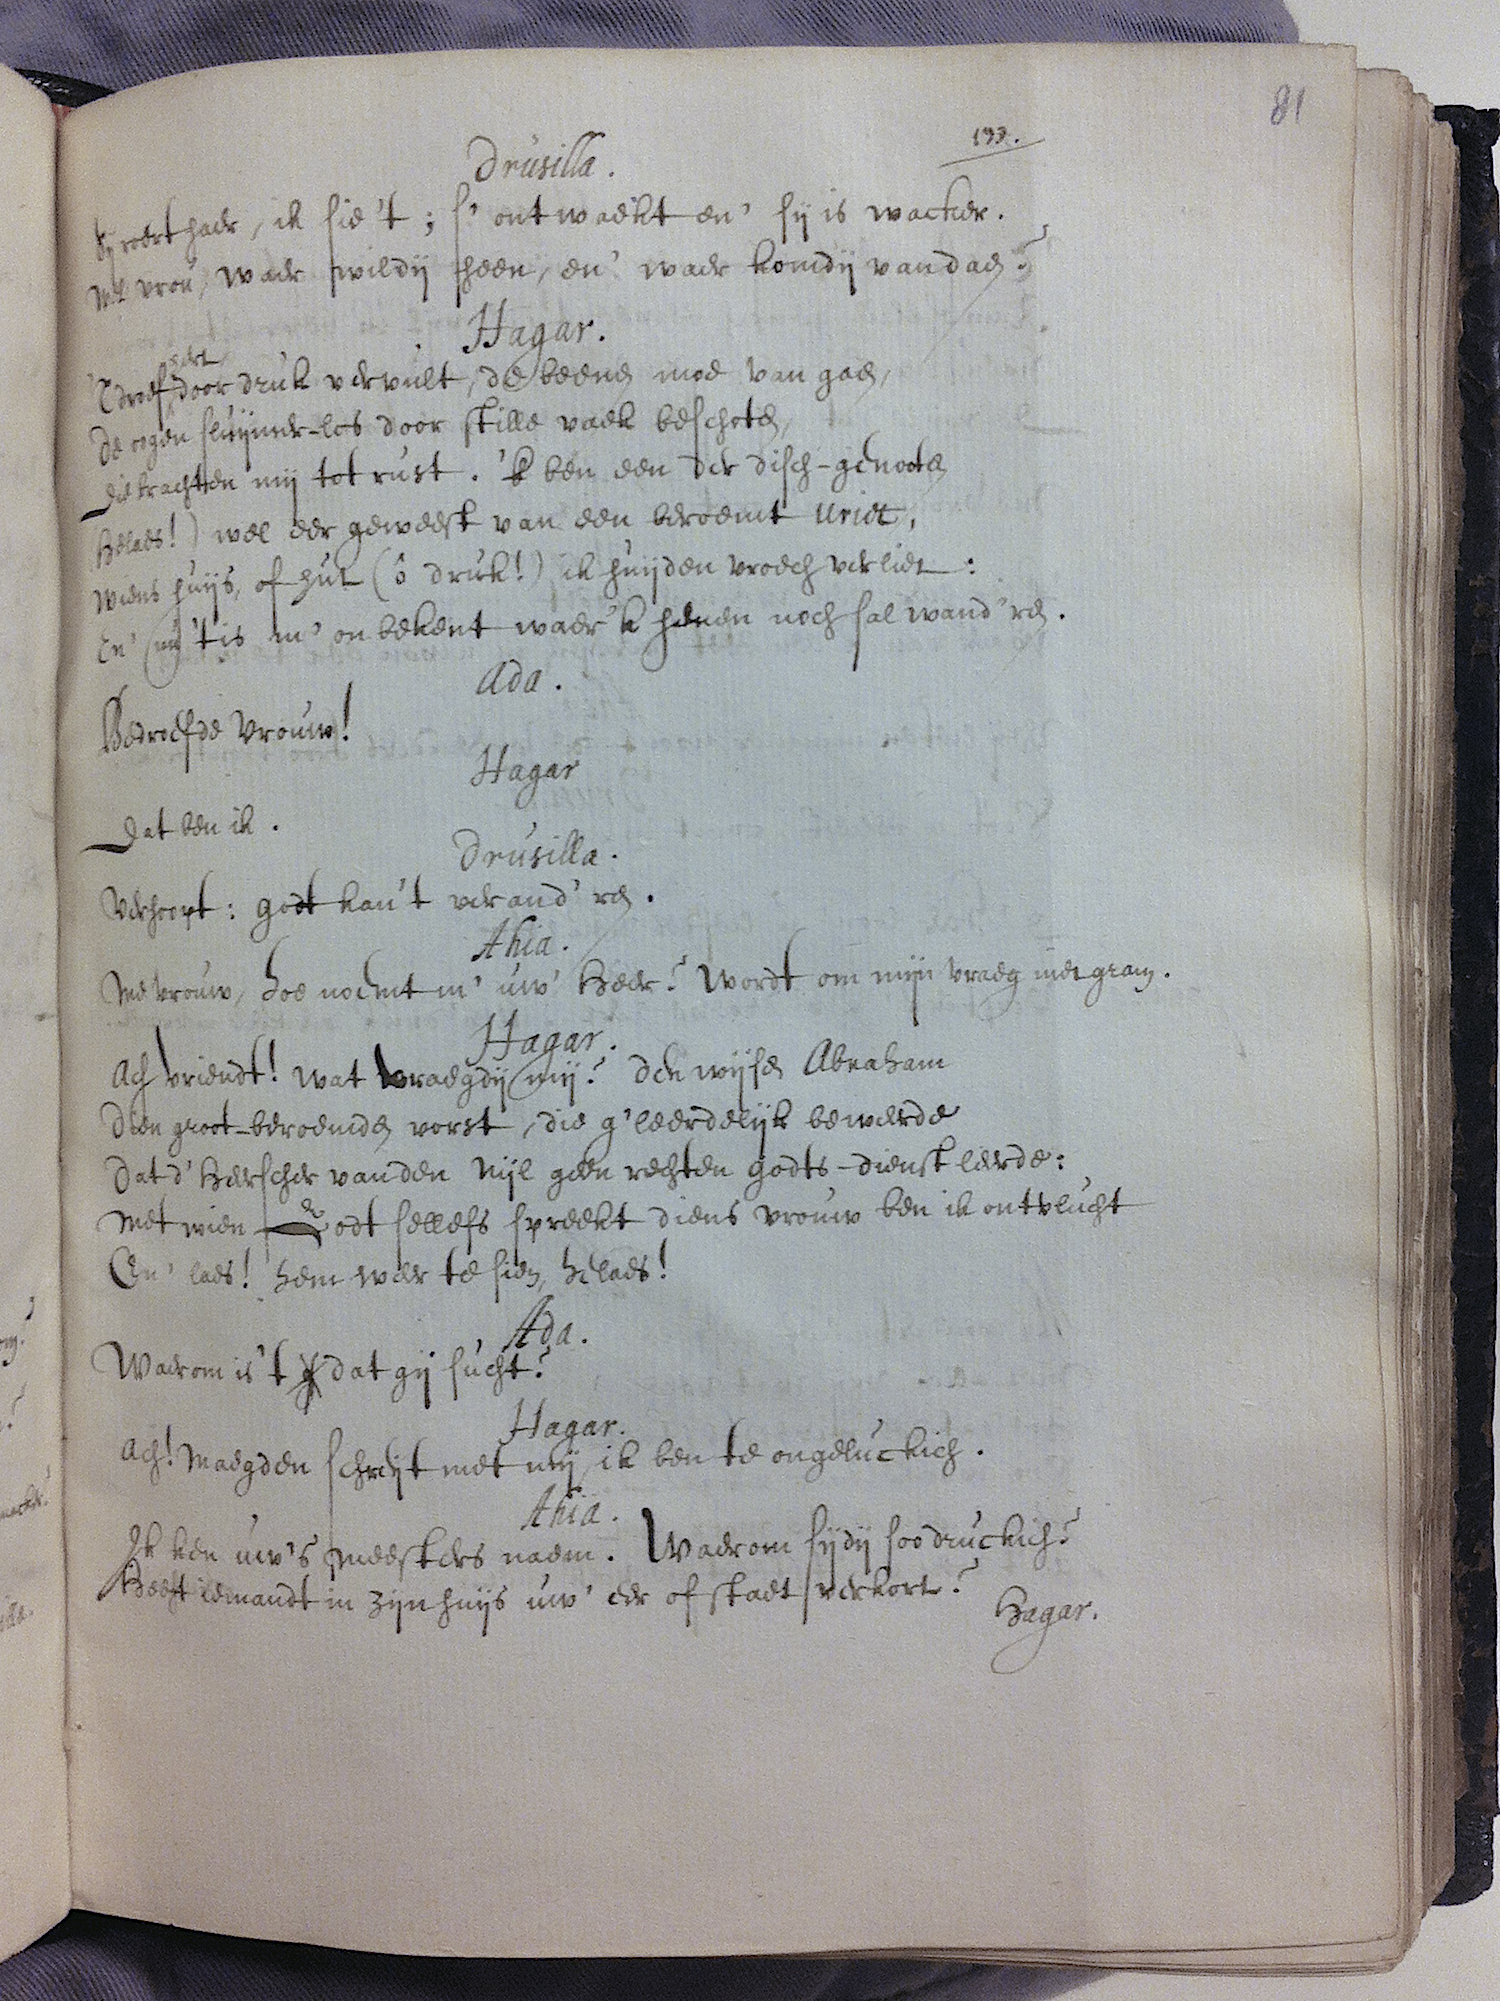 81
133.
Drusilla.
Sy roert haer, ik sie 't; s' ontwaekt en' sij is wacker.
Me vrou, waer wildij heen, en' waer komdij van daen?
Hagar.
hert
'T droef door druk vervult, de beenen moe van gaen,
De oogen sluijmer-los door stille vaek beschoten,
Die brachten mij tot rust. 'k ben een der disch-genooten
Helaes!) wel eer geweest van een beroemt
Wiens huijs, of hut (ô druk!) ik huijden vroech verliet:
En' 't is m' onbekent waer 'k henen noch sal wand'ren.
Ada.
Bedroefde Vrouw!
Hagar
Dat ben ik.
Drusilla.
Verhoopt: godt kan 't verand'ren.
Ahia.
Me vrouw, hoe noemt m' uw' Heer? Wordt om mijn vraeg niet gram.
Hagar.
Ach vriendt! wat vraegdij mij? den wijsen Abraham
Dien groot-beroemden vorst, die g'leerdelijk beweerde
Dat d' Heerscher van den Nijl geen rechten godts-dienst leerde:
Met wien odt sellefs spreekt diens vrouw ben ik ontvlucht
En' laes! hem weer te sien, helaes!
Ada.
Waerom is 't dat gij sucht?
Hagar.
Ach! Maegden schreijt met mij, ik ben te ongeluckich.
Ahia.
Ik ken uw's meesters naem. Waerom sijdij soo druckich?
Heeft iemandt in zijn huijs uw' eer of staet verkort?
Hagar.